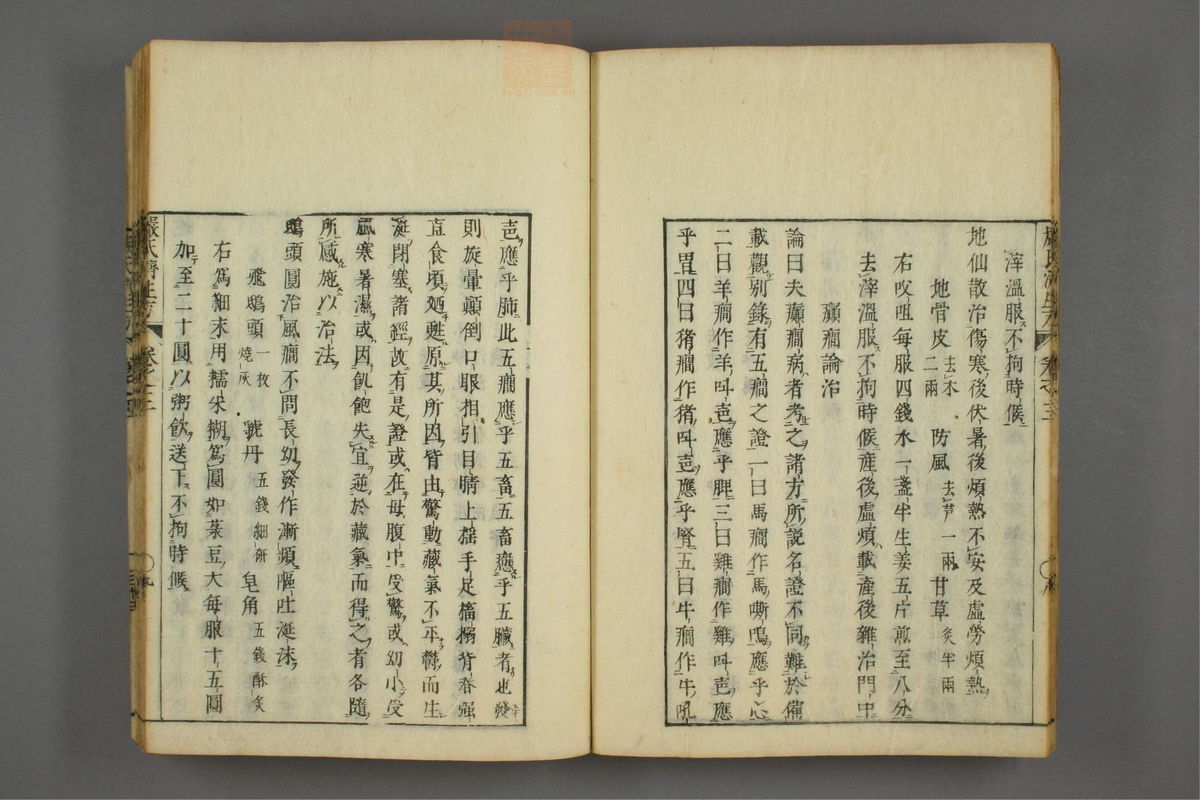 滓溫服不拘時候
地仙散治傷寒後伏暑後煩熱不安及虛勞煩熱
地骨皮去木二兩 防風去芦一兩 甘草炙半兩
右㕮咀每服四錢水一盞半生姜五片煎至八分
去滓溫服不拘時候産後虛煩載産後雜治門中
癲癇論治
論曰夫癲癇病者考之諸方所説名證不同難於備
載觀别錄有五癇之證一曰馬癇作馬嘶鳴應乎心
二曰羊癇作羊叫聲應乎脾三曰雞癇作雞叫聲應
乎胃四曰猪癇作猪叫聲應乎腎五曰牛癇作牛吼
聲應乎肺此五癇應乎五畜五畜應乎五臓者也發
則旋暈顛倒口眼相引目睛上揺手足搐搦背脊强
直食頃廼甦原其所因皆由驚動藏氣不平鬱而生
涎閉塞諸經故有是證或在母腹中受驚或幼小受
風寒暑濕或因飢飽失宜逆於藏氣而得之者各隨
所感施以治法
鴟頭圓治風癇不問長幼發作漸頻嘔吐涎沫
飛鴟頭一枚燒灰 鉛丹五錢細研 皂角五錢酥炙
右爲細末用糯米糊爲圓如菉豆大每服十五圓
加至二十圓以粥飲送下不拘時候
嚴氏濟生方 卷之三